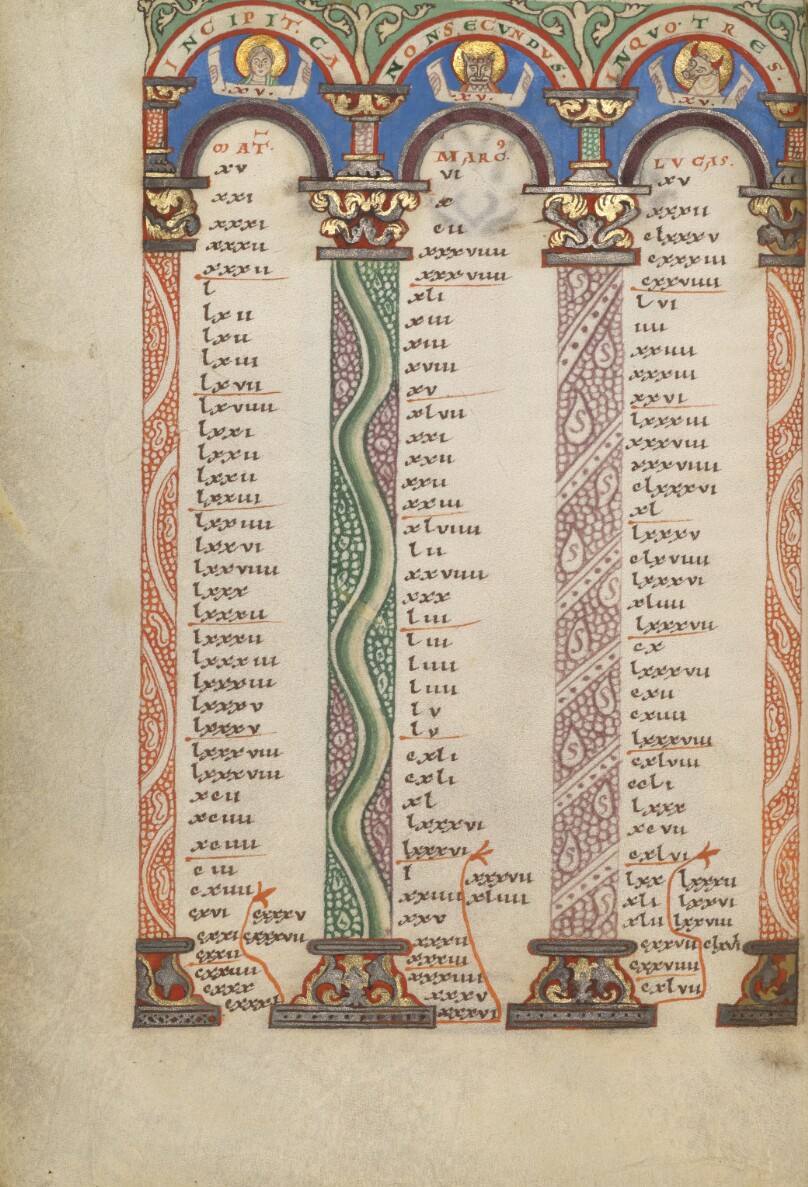 INCIPIT·CA
NONSECVNDVS·
INQVO·TRES·
XV·
XV·
XV·
MAT·
xv
xxi
xxxi
xxxii
xxxii
l
lxii
lxii
lxiii
lxvii
lxviiii
lxxi
lxxii
lxxii
lxxiii
lxxiiii
lxxvi
lxxviiii
lxxx
lxxxii
lxxxii
lxxxiii
lxxxiii
lxxxv
lxxxv
lxxxviii
lxxxviii
xcii
xciiii
xciiii
ciii
cxiiii
cxvi cxxxv
cxxi cxxxvii
cxxii
cxxiiii
cxxx
cxxxi
MARC·
vi
x
cii
xxxviiii
xxxviiii
xli
xiii
xiii
xviii
xv
xlvii
xxi
xxii
xxii
xxiii
xlviiii
lii
xxviiii
xxx
liii
liii
liiii
liiii
lv
lv
cxli
cxli
xl
lxxxvi
lxxxvi
l xxxvii
xxiiii xliiii
xxv
xxxii
xxxiii
xxxiiii
xxxv
xxxvi
LVCAS·
xv
xxxii
clxxxv
cxxxiii
cxxviiii
lvi
iiii
xxiiii
xxxiii
xxvi
lxxxiii
xxxviii
xxxviiii
clxxxvi
xl
lxxxv
clxviiii
lxxxvi
xliiii
lxxxvii
cx
lxxxvii
cxii
cxiiii
lxxxviii
cxlviii
ccli
lxxx
xcvii
cxlvi
lxx lxxxii
xli lxxvi
xlii lxxviii
cxxvii clxvi
cxxviiii
cxlvii